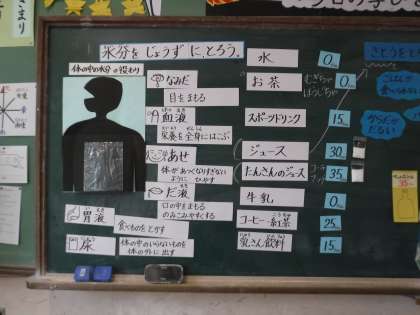 水分をじょうずに、とろう。
体の中の水分の役わり
なみだ
目をまもる
血液
栄養を全身にはこぶ
あせ
体があつくなりすぎない
ようにひやす
だ液
口の中をまもる
のみこみやすくする
胃液
食べものをとかす
尿
体の中のいらないものを
体の外に出す
水
0
お茶
むぎちゃ
ほうじちゃ
0
スポーツドリンク
15
ジュース
30
たんさんのジュース
コーラ
35
牛乳
0
コーヒー・紅茶
25
乳さん飲料
15
さとうをと
だるい